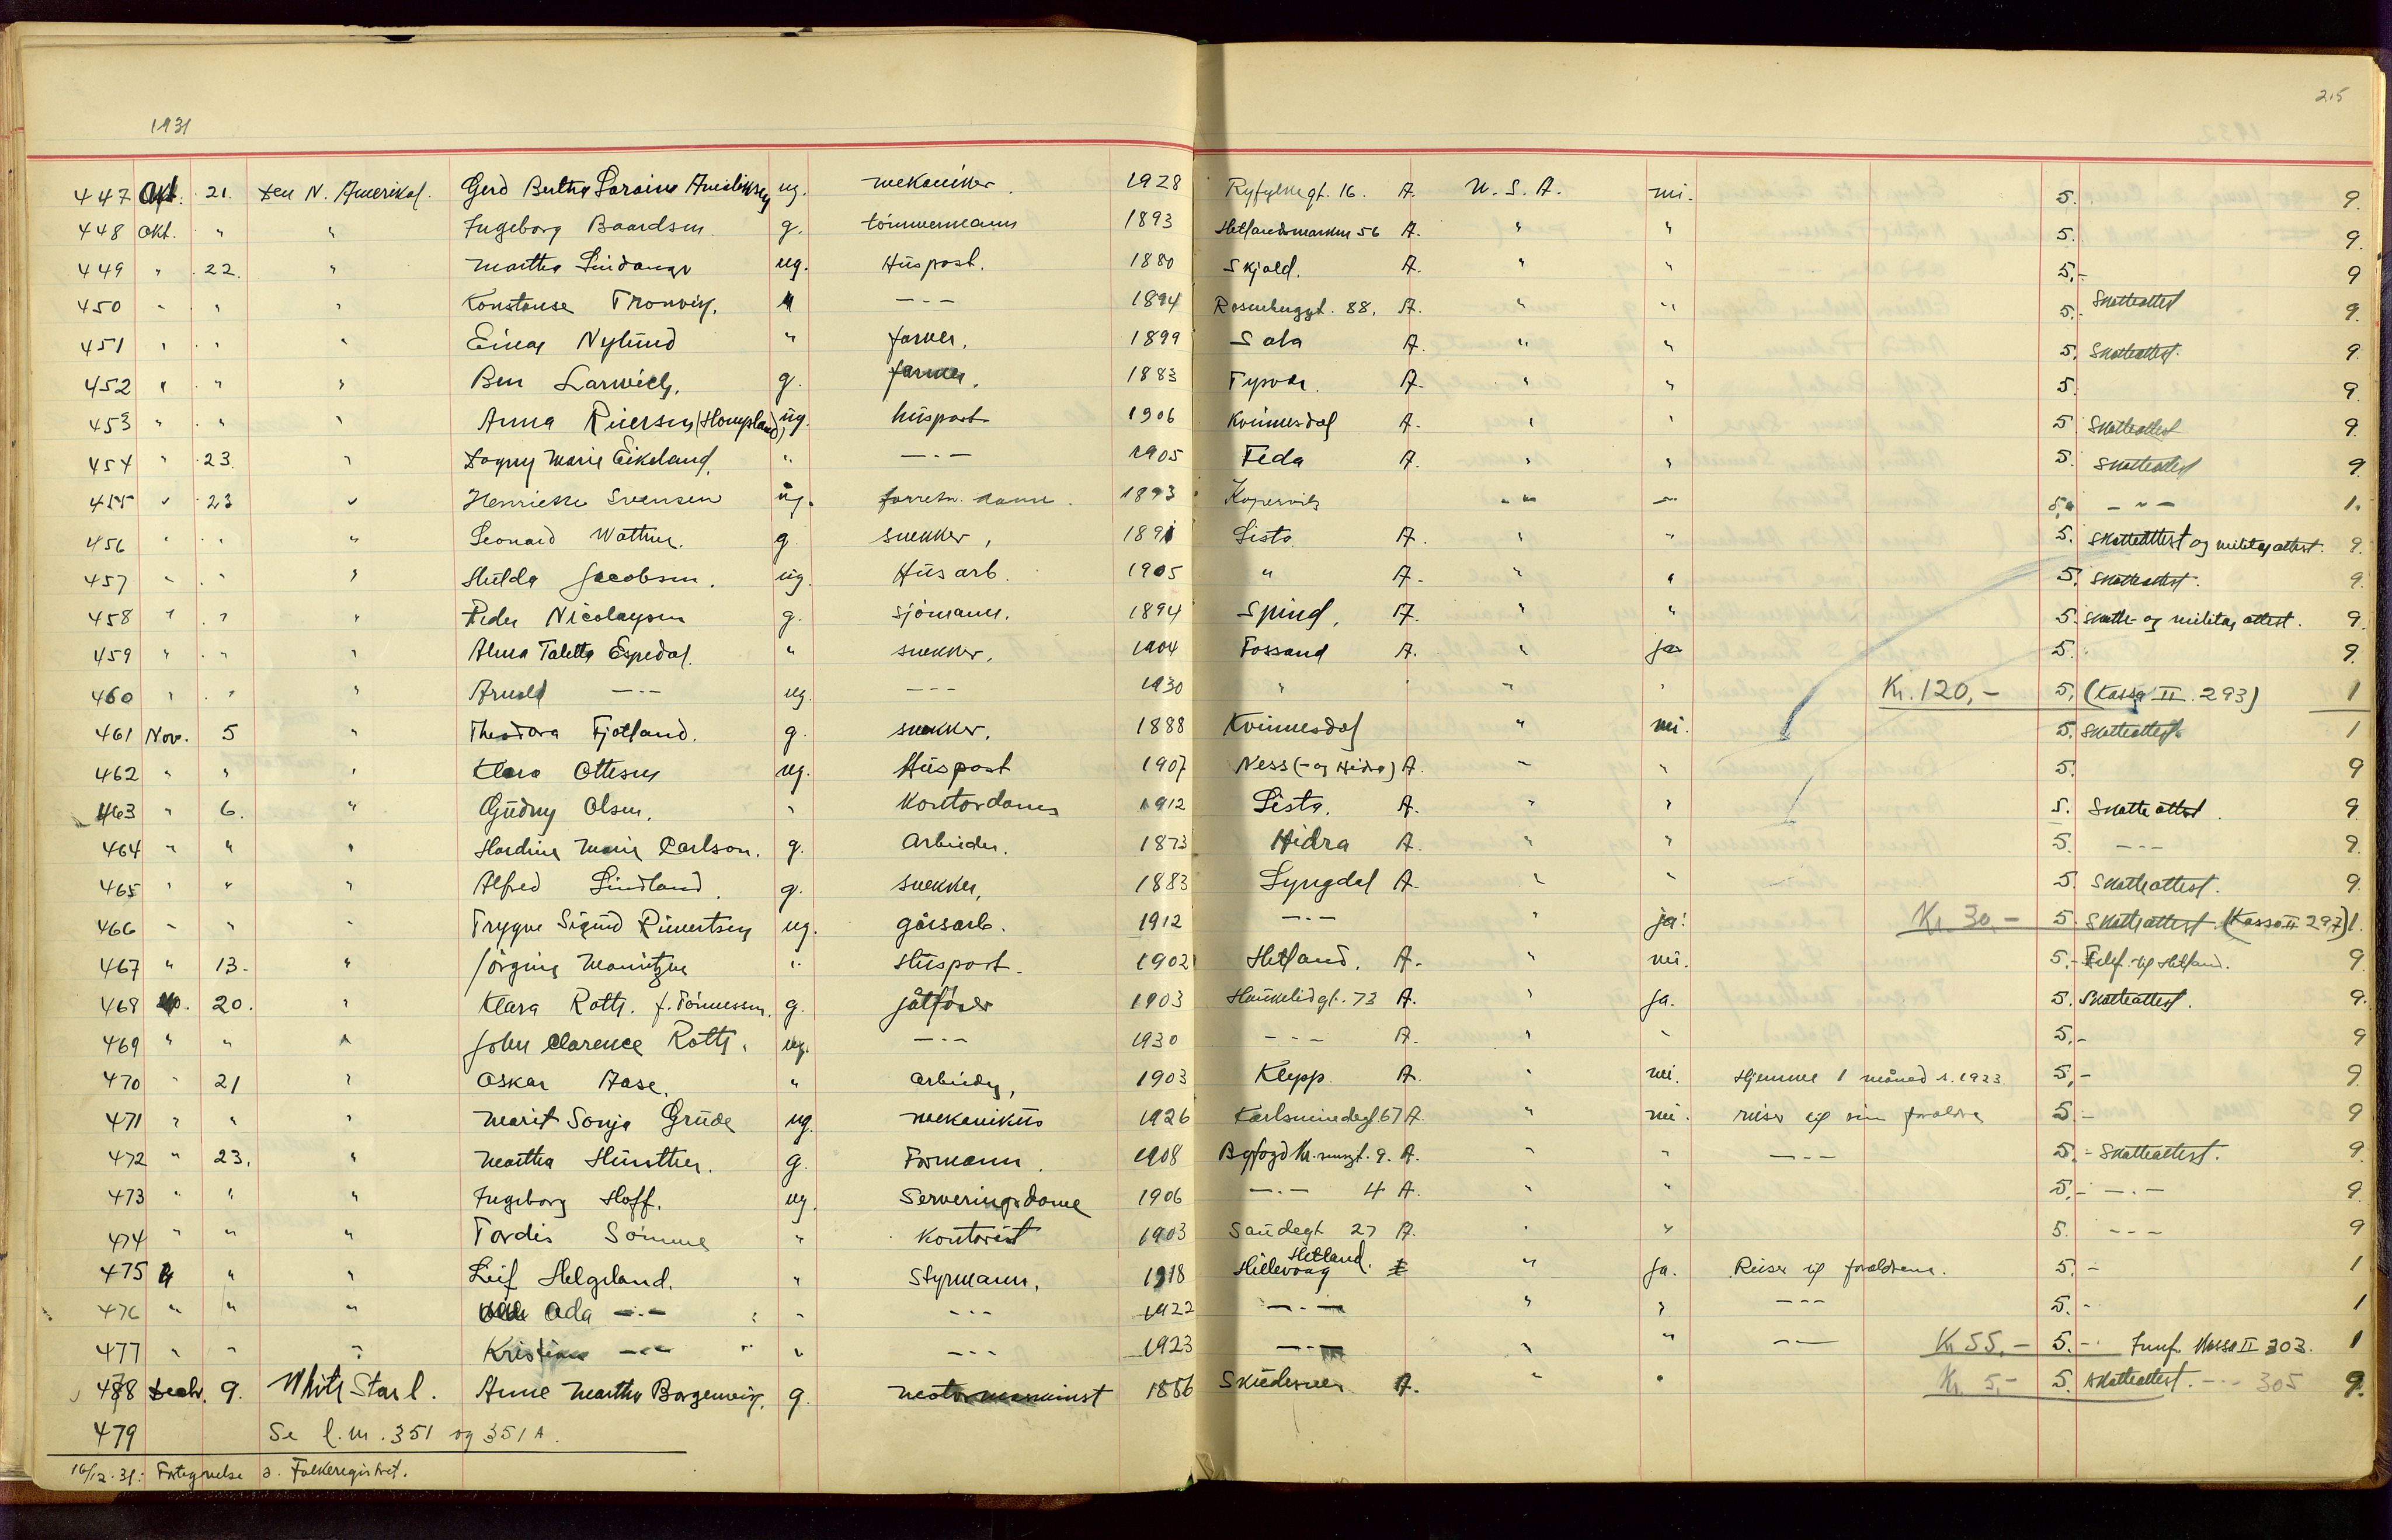 1931 215
447 Okt. 21. Den N. Amerikal. Gerd Bertha Loraine ug. mekaniker. 1928 Ryfylkegt. 16. A. U.S.A. nei. 5. 9.
448 Okt. " " Ingeborg Baardsen g. tömmermann 1893 Hetlandsmarken 56 A. " " 5. 9.
449 " 22. " Martha Lindanger ug. Huspost. 1880 Skjold. A. " " 5,- 9
450 " " " Konstanse Tronvig. " -"- 1894 Rosenberggt. 88, A. " " 5.- Skatteattest 9.
451 " " " Einar Nylund " farmer. 1899 Sola A. " " 5. Skatteattest. 9.
452 " " " Ben Larwick, g. farmer. 1883 Tysvær. A. " " 5. 9.
453 " " " Anna Reiersen (Hompland) ug. huspost 1906 Kvinnesdal A. " " 5 Skatteattest 9.
454 " 23. " Dagny Marie Eikeland, " -"- 1905 Feda A. " " 5. Skatteattest 9
455 " 23 " Henrikke Svensen ug. forretn. dame. 1893 Kopervik " " " 5. -"- 1.
456 " " " Leonard Wathne. g. snekker, 1891 Lista A. " " 5. Skatteattest og militærattest. 9.
457 " " " Hulda Jacobsen. ug. Husarb. 1905 " A. " " 5. Skatteattest. 9.
458 " " " Peder Nicolaysen g. sjömann. 1894 Spind, A. " " 5. Skatte- og militær attest. 9.
459 " " " Alma Taletta Espedal. " snekker. 1904 Fossand A. " ja 5. 9.
460 " " " Arnold -"- ug. -"- 1930 " " " Kr. 120,- 5, (Kassa II. 293) 1
461 Nov. 5 " Theodora Fjotland. g. snekker. 1888 Kvinnesdal " nei. 5. Skatteattest. 1
462 " " " Klara Ottesen ug. Huspost 1907 Ness (- og Hidra) A. " " 5. 9
463 " 6. " Gudny Olsen. " Kontordame 1912 Lista. A. " " 5. Skatteattest. 9.
464 " " " Hardine Marie Carlson. g. Arbeider. 1873 Hidra A. " " 5. -"- 9.
465 " " " Alfred Lindland. g. snekker, 1883 Lyngdal A. " " 5. Skatteattest. 9.
466 " " " Trygve Sigurd Reinertsen ug. gårsarb. 1912 -"- " ja! Kr. 30,- 5. Skatteattest (Kassa II 297) 1.
467 " 13. " Jörgine Mauritzen " Huspost. 1902 Hetland, A. " nei. 5.- Telef. til Hetland. 9
468 20. " Klara Rott. f. Tönnessen, g. 1903 Haukelidgt. 73 A. " ja. 5. Skatteattest. 9.
469 " " " John Clarence Rott. ug. -"- 1930 -"- A. " " 5,- 9
470 " 21 " Oskar Aase. " arbeider, 1903 Klepp. A. " nei. Hjemme 1 måned s. 1923. 5,- 9.
471 " " " Marit Sonja Grude ug. mekanikus 1926 A. " nei. reiser til sine foreldre 5.- 9
472 " 23. " Martha g. Formann. 1908 9. A. " " -"- 5.- Skatteattest. 9.
473 " " " Ingeborg Hoff. ug. Serveringsdame 1906 -"- 4 A. " " 5.- -"- 9.
474 " " " Tordis Sömme " kontorist 1903 Saudegt 27 A. " " 5. -"- 9
475 " " " Leif Helgeland. " Styrmann. 1918 Hillevaag Hetland. " ja. Reiser til foreldrene. 5.- 1
476 " " " Ada -"- " -"- 1922 -"- " " -"- 5.- 1
477 " " " Kristian -"- " -"- 1923 -"- " " -"- Kr 55,- 5.- Kassa II 303. 1
478 Decbr. 9. White Star l. Anne Martha Borgenvig. g. motormaskinist 1886 Skudesnes A. " " Kr. 5,- 5. Skatteattest. -"- 305 9.
479 Se l.nr. 351 og 351 A.
16/12.31: Fortegnelse s. Folkeregistret.